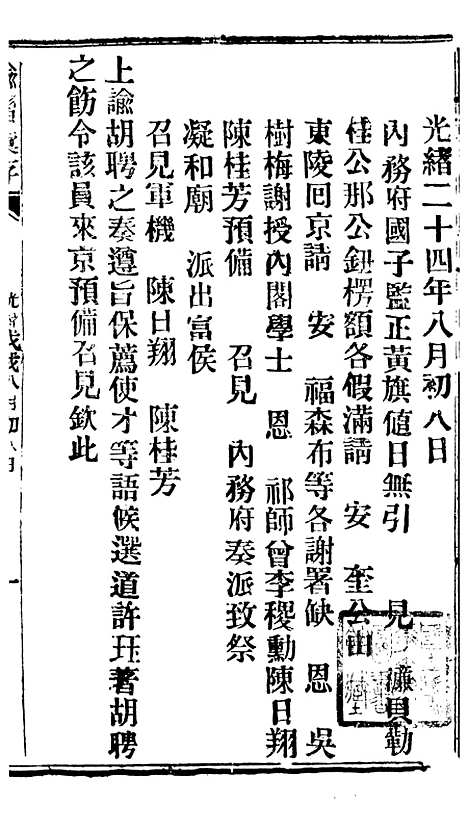 光緒二十四年八月初八日
內務府國子監正黃旗値日無引　見　濂貝勒
桂公那公鈕楞額各假滿請　安　奎公由
東陵回京請　安　福森布等各謝署缺　恩　吳
樹梅謝授內閣學士　恩　祁師曾李稷勳陳日翔
陳桂芳預備　召見　內務府奏派致祭
凝和廟　派出富侯
召見軍機　陳日翔　陳桂芳
上諭胡聘之奏遵旨保薦使才等語候選道許珏著胡聘
之飭令該員來京預備召見欽此
諭摺彙存
光緒戊戌八月初八日
一